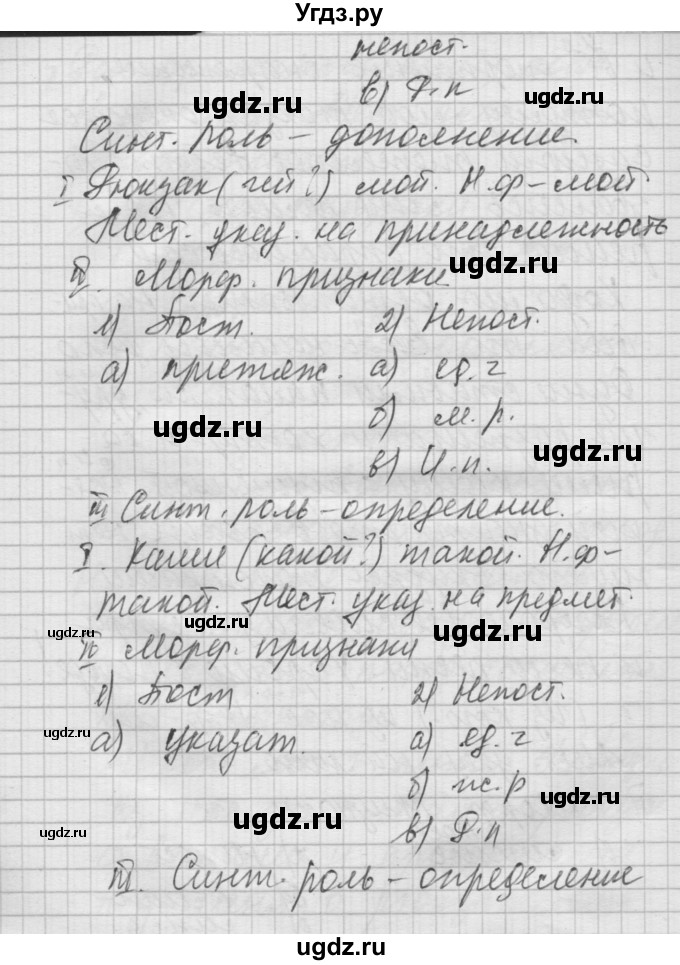 Угдз.ру
непост.
ugdz.ru в) Д.п ugdz.ru
Синт. роль – дополнение.
I Рюкзак (чей?) мой. Н.ф – мой.
Мест. указ. на принадлежность
II. Морф. признаки ugdz.ru
1) Пост. 2) Непост.
а) притяж. а) ед. ч
ugdz.ru б) м. р.
в) И. п. ugdz.ru
III Синт. роль – определение.
I. Каши (какой?) такой. Н.ф –
такой. Мест. указ. на предмет.
ugdz.ru ugdz.ru
II Морф. признаки
1) Пост 2) Непост.
ugdz.ru
а) указат. а) ед. ч
б) ж. р ugdz.ru
ugdz.ru ugdz.ru
в) Д. п
III. Синт. роль – определение
ugdz.ru